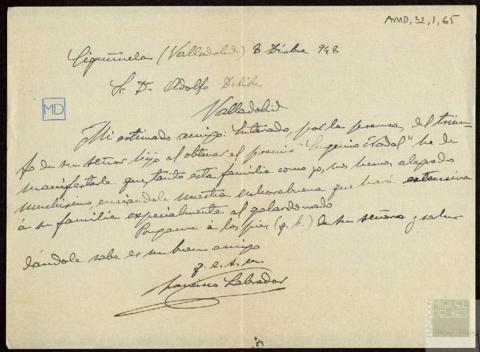 AMD, 32, 1, 65
Cigüñuela (Valladolid) 8 Dicbre 948
Sr. D. Adolfo Delibes
Valladolid
MD
Mi estimado amigo: Enterado, por la prensa, del triun-
fo de su señor hijo al obtener el premio "Eugenio Nadal" he de
manifestarle que, tanto esta familia como yo, nos hemos alegrado
muchísimo, enviándole nuestra enhorabuena que hará extensiva
á su familia especialmente al galardonado
Póngame á los pies (q. b.) de su señora y salu-
dándole sabe es su buen amigo
q. e. s. m.
Labrador
MIGUEL
DELIBES